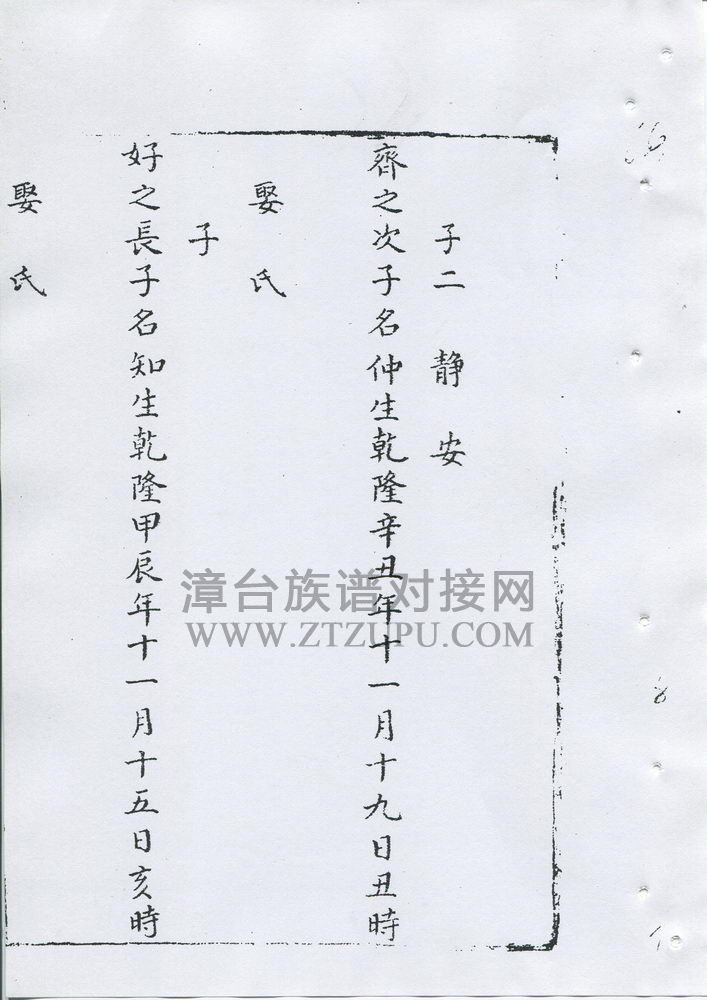 子二 静安
齊之次子名仲生乾隆辛丑年十一月十九日丑時
娶氏
子
好之長子名知生乾隆甲辰年十一月十五日亥時
娶氏
漳台族谱对接网
WWW.ZTZUPU.COM